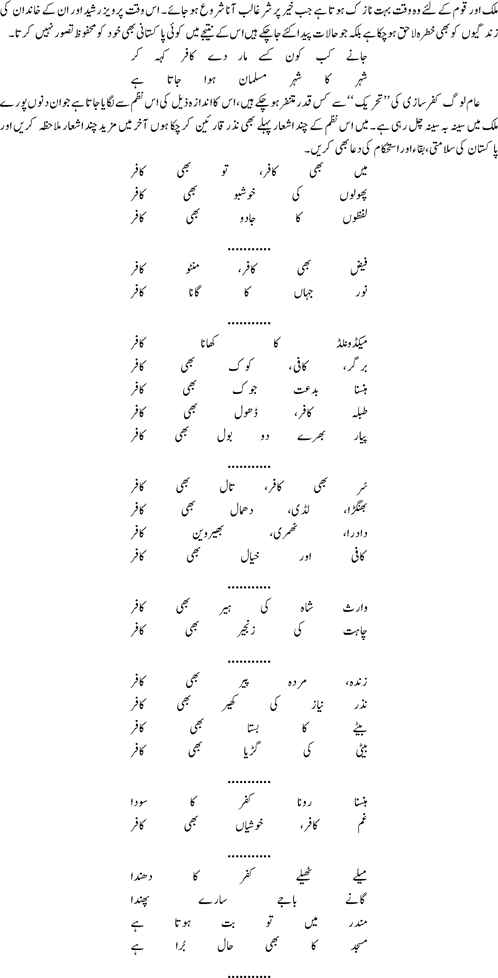 ملک اور قوم کے لئے وہ وقت بہت نازک ہوتا ہے جب خیر پر شر غالب آنا شروع ہو جائے۔ اس وقت پرویز رشید اور ان کے خاندان کی
زندگیوں کو بھی خطرہ لاحق ہو چکا ہے بلکہ جو حالات پیدا کئے جا چکے ہیں اس کے نتیجے میں کوئی پاکستانی بھی خود کو محفوظ تصور نہیں کرتا۔
جانے کب کون کسے مار دے کافر کہہ کر
شہر کا شہر مسلمان ہوا جاتا ہے
عام لوگ کفر سازی کی ’’تحریک‘‘ سے کس قدر متنفر ہو چکے ہیں، اس کا اندازہ ذیل کی اس نظم سے لگایا جاتا ہے جو ان دنوں پورے
ملک میں سینہ بہ سینہ چل رہی ہے۔ میں اس نظم کے چند اشعار پہلے بھی نذر قارئین کر چکا ہوں آخر میں مزید چند اشعار ملاحظہ کریں اور
پاکستان کی سلامتی، بقاء اور استحکام کی دعا بھی کریں۔
میں بھی کافر، تو بھی کافر
پھولوں کی خوشبو بھی کافر
لفظوں کا جادو بھی کافر
...........
فیض بھی کافر، منٹو کافر
نور جہاں کا گانا کافر
...........
میکڈونلڈ کا کھانا کافر
برگر، کافی، کوک بھی کافر
ہنسنا بدعت جوک بھی کافر
طبلہ کافر، ڈھول بھی کافر
پیار بھرے دو بول بھی کافر
...........
سُر بھی کافر، تال بھی کافر
بھنگڑا، لڈی، دھمال بھی کافر
دادرا، ٹھمری، بھیروین کافر
کافی اور خیال بھی کافر
...........
وارث شاہ کی ہیر بھی کافر
چاہت کی زنجیر بھی کافر
...........
زندہ، مردہ پیر بھی کافر
نذر نیاز کی کھیر بھی کافر
بیٹے کا بستا بھی کافر
بیٹی کی گڑیا بھی کافر
...........
ہنسنا رونا کفر کا سودا
غم کافر، خوشیاں بھی کافر
...........
میلے ٹھیلے کفر کا دھندا
گانے باجے سارے پھندا
مندر میں تو بت ہوتا ہے
مسجد کا بھی حال بُرا ہے
...........